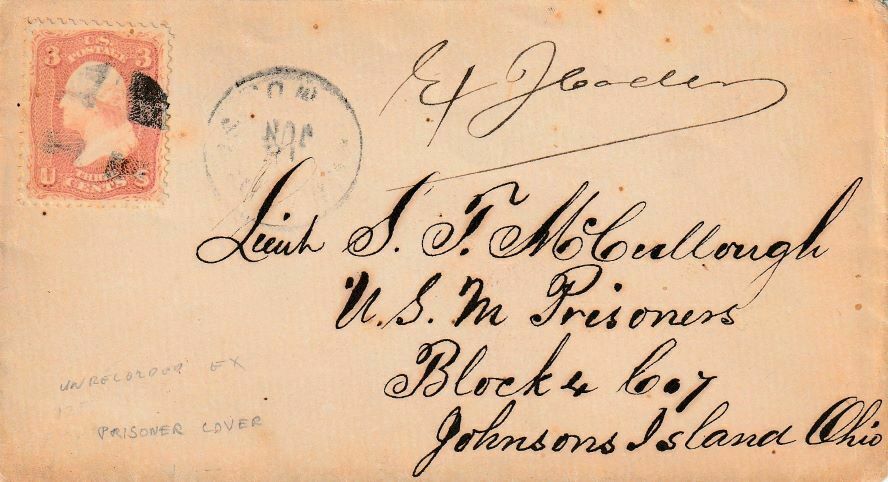 3 U.S. 3
POSTAGE
THREE
U CENTS S
Ex
Lieut S. T. McCullough
U.S. M Prisoners
Block 4 Co 7
Johnsons Island Ohio
UNRECORDED EX
PRISONER COVER